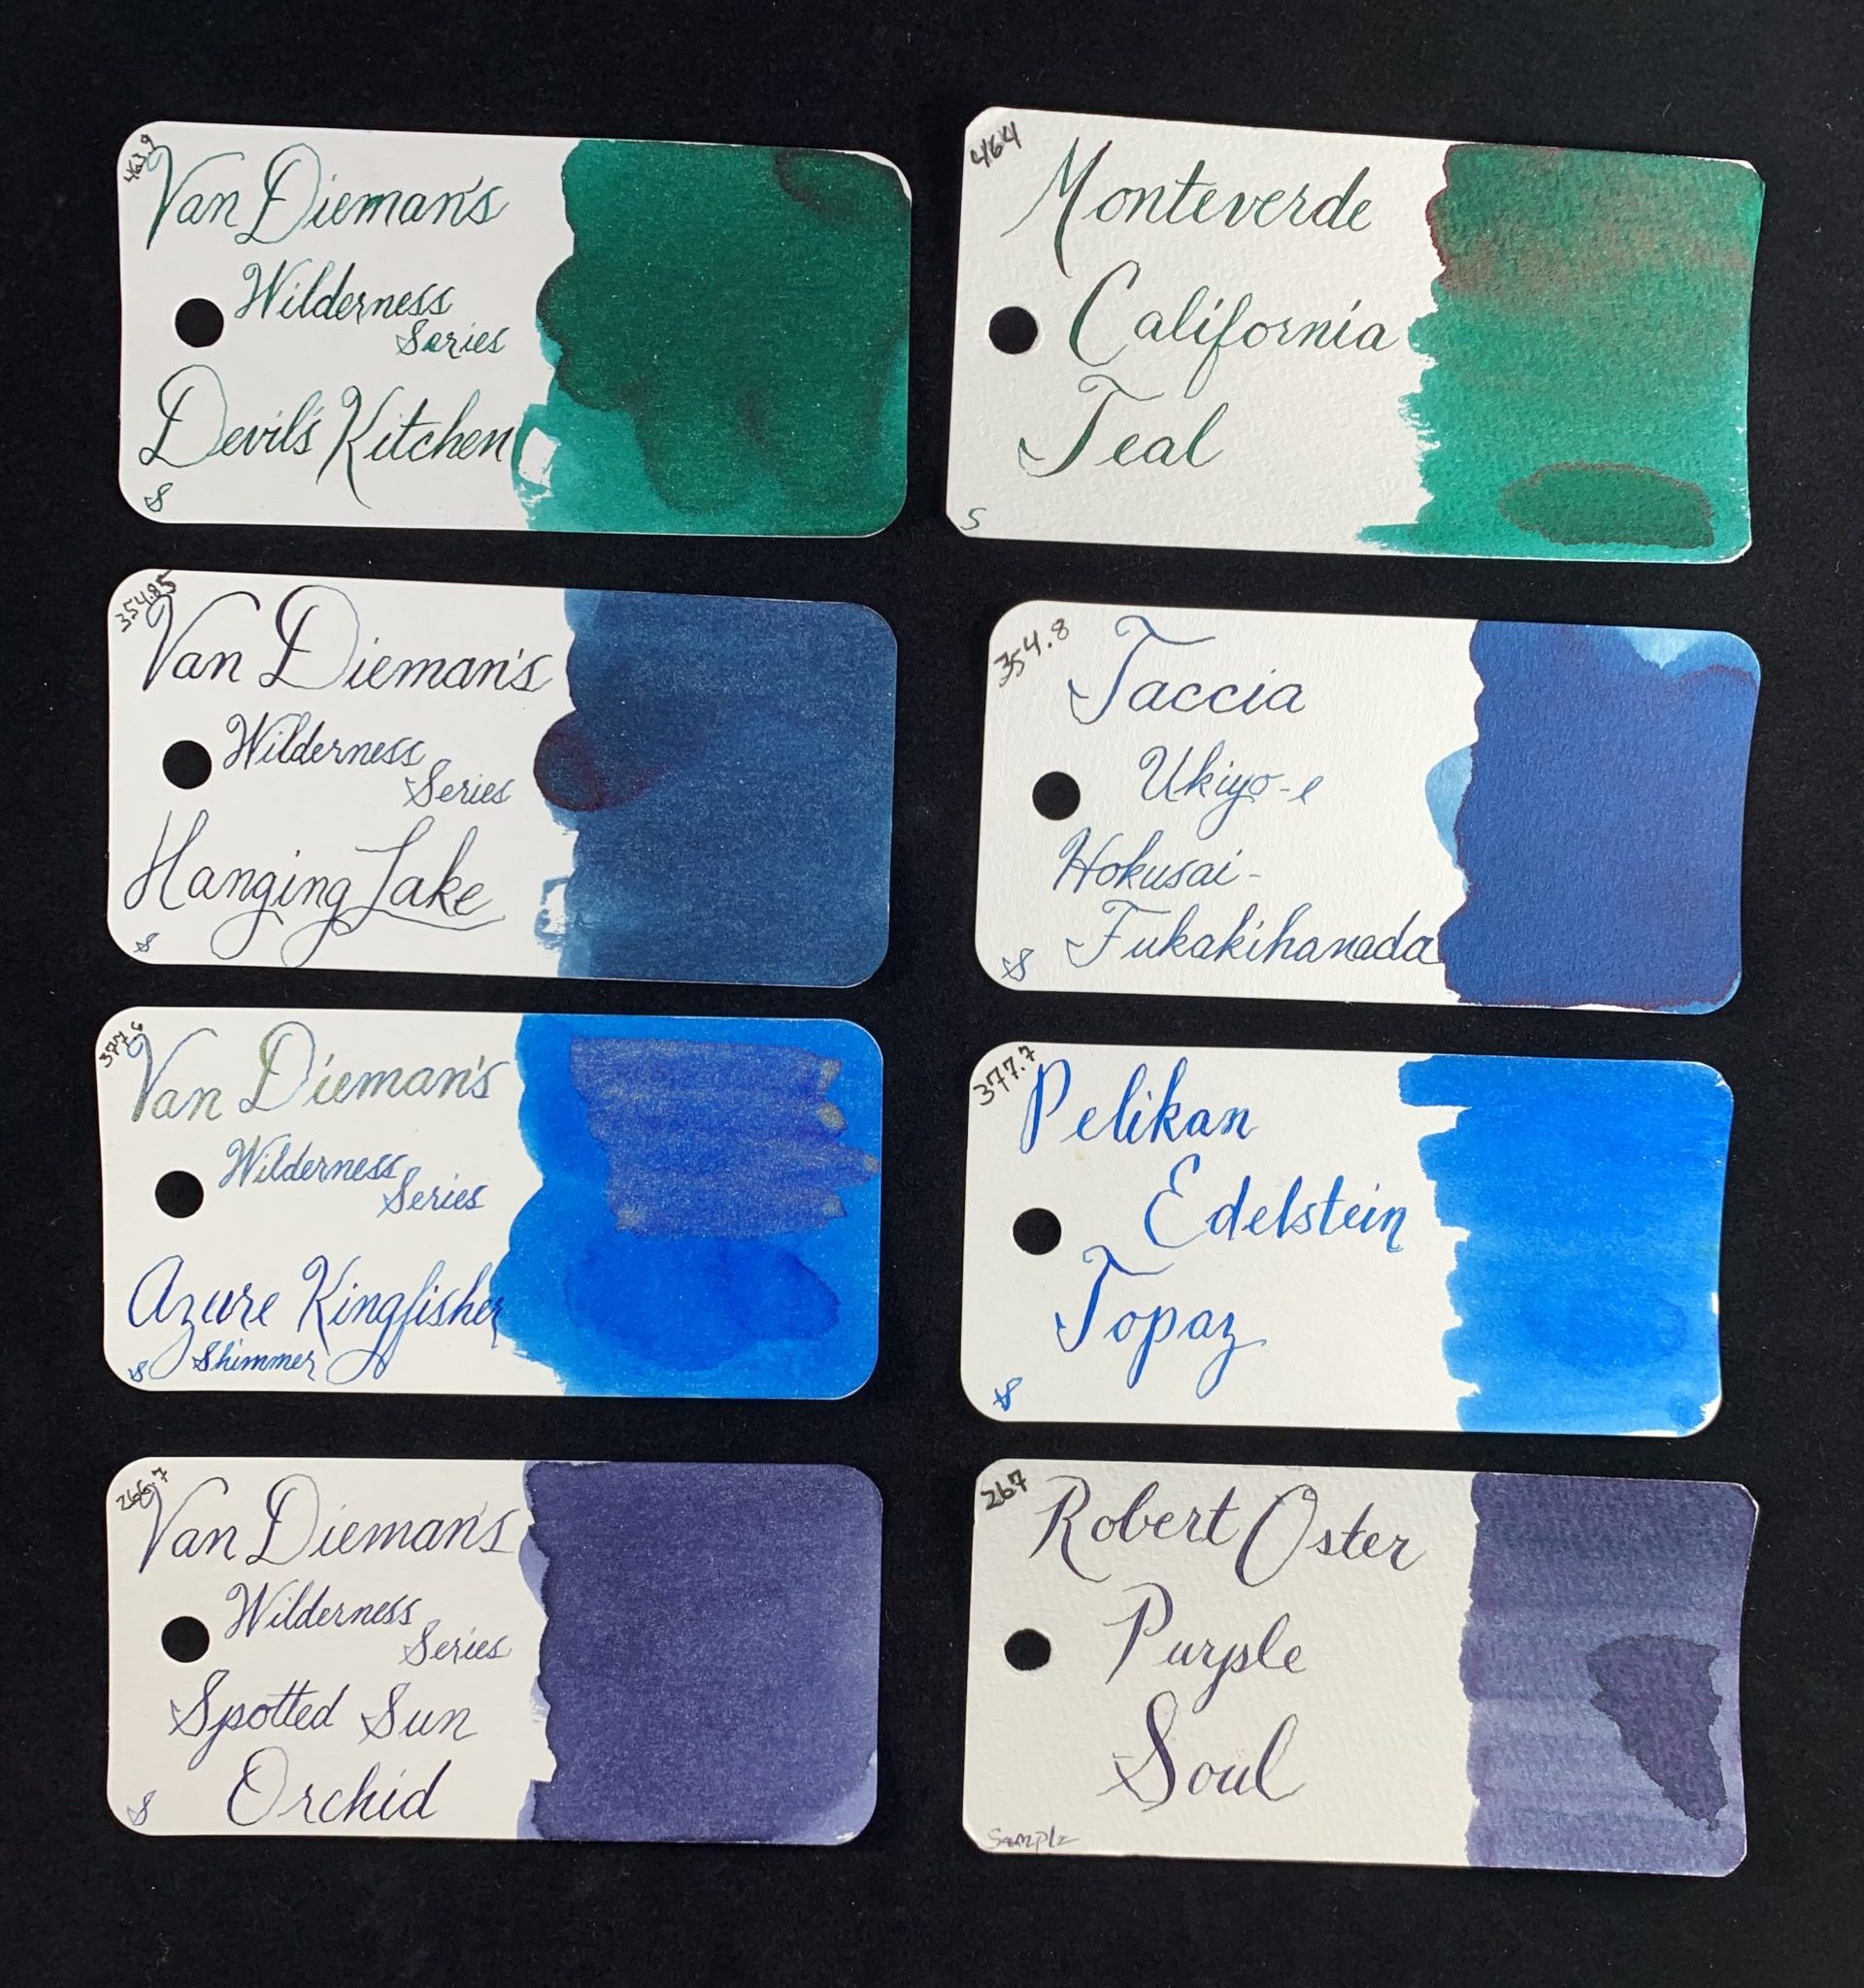 463.9
Van Dieman's
Wilderness
Series
Devil's Kitchen
S
464
Monteverde
California
Teal
S
354.85
Van Dieman's
Wilderness
Series
Hanging Lake
S
354.8
Taccia
Ukiyo-e
Hokusai-
Fukakihanada
S
377.6
Van Dieman's
Wilderness
Series
Azure Kingfisher
Shimmer
S
377.7
Pelikan
Edelstein
Topaz
S
266.7
Van Dieman's
Wilderness
Series
Spotted Sun
Orchid
S
267
Robert Oster
Purple
Soul
Sample